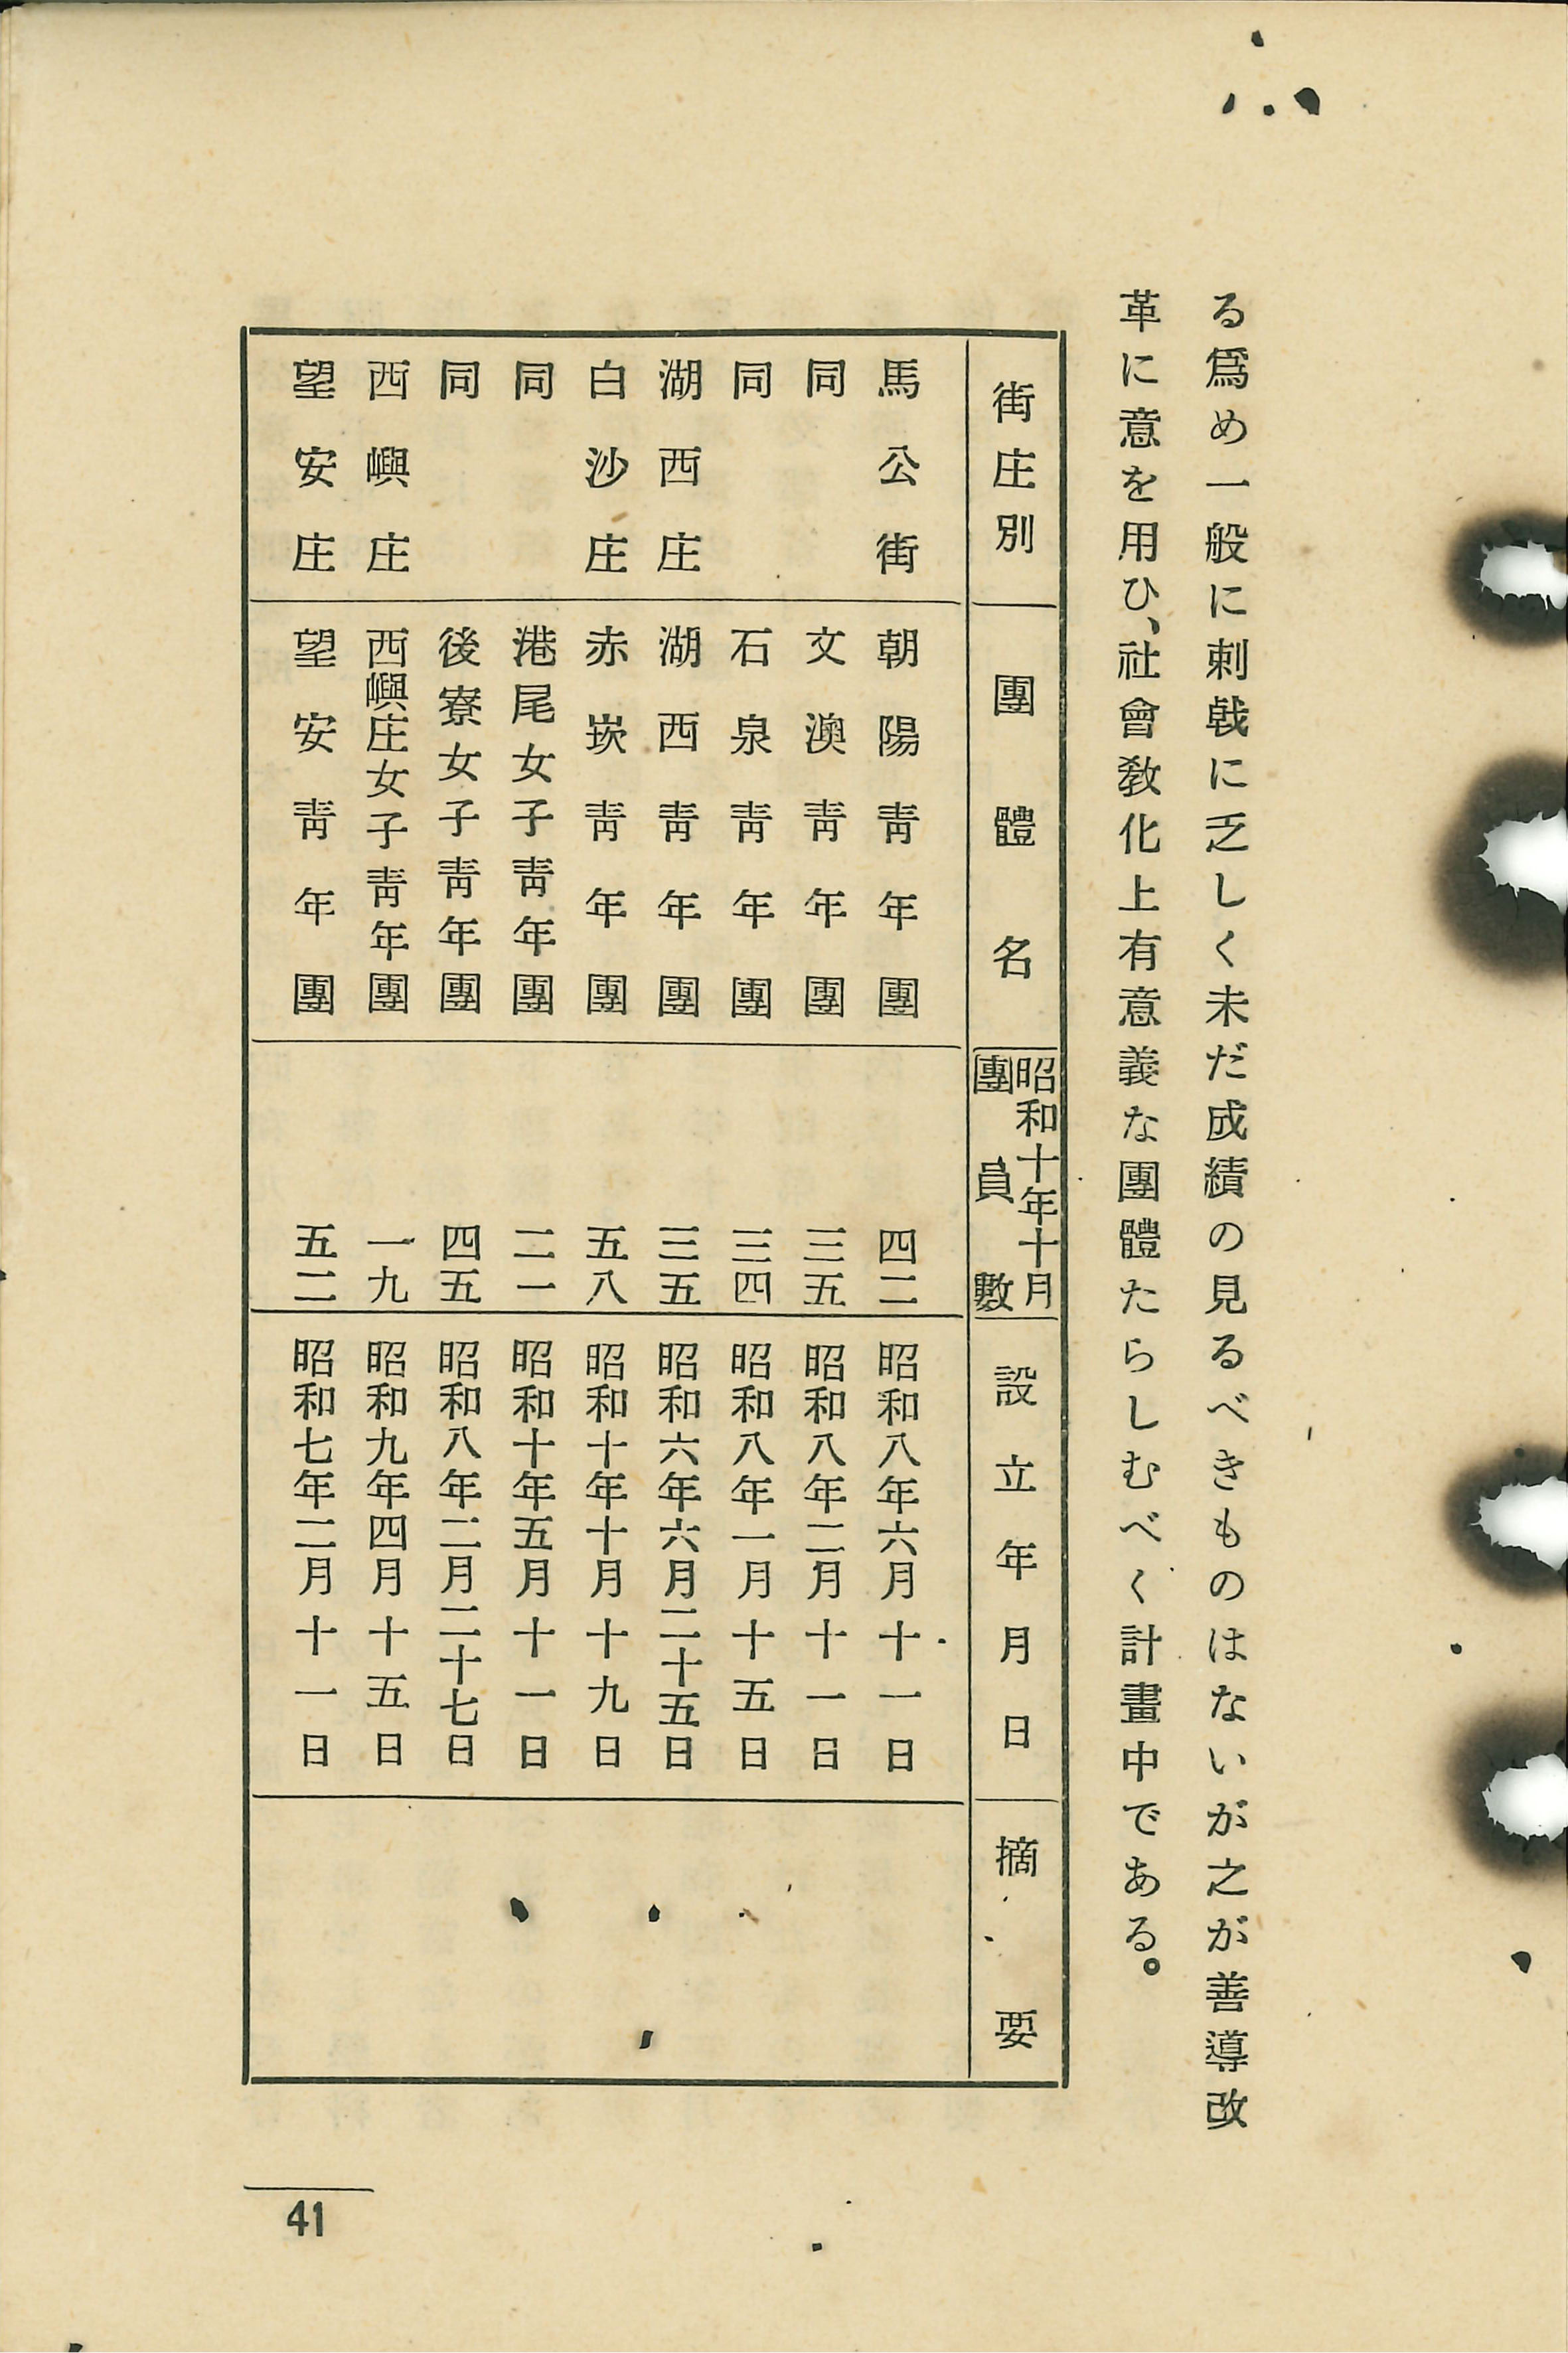 る爲め一般に刺戟に乏しく未だ成績の見るべきものはないが之が善導改
革に意を用ひ、社會敎化上有意義な團體たらしむべく計畫中である。
街庄別 團體名 昭和十年十月團員數 設立年月日 摘要
馬公街 朝陽靑年團 四二 昭和八年六月十一日
同 文澳靑年團 三五 昭和八年二月十一日
同 石泉靑年團 三四 昭和八年一月十五日
湖西庄 湖西靑年團 三五 昭和六年六月二十五日
白沙庄 赤崁靑年團 五八 昭和十年十月十九日
同 港尾女子靑年團 二一 昭和十年五月十一日
同 後寮女子靑年團 四五 昭和八年二月二十七日
西嶼庄 西嶼庄女子靑年團 一九 昭和九年四月十五日
望安庄 望安靑年團 五二 昭和七年二月十一日
41